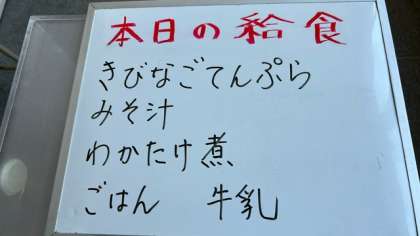 本日の給食
きびなごてんぷら
みそ汁
わかたけ煮
ごはん　牛乳